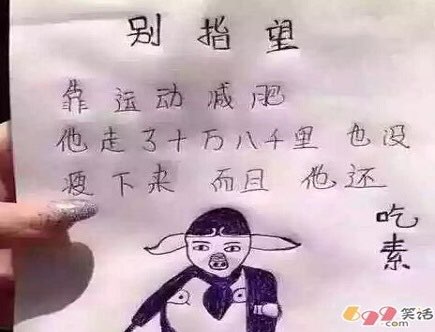 别指望
靠运动减肥
他走了十万八千里 也没
瘦下来 而且 他还
吃素
笑话